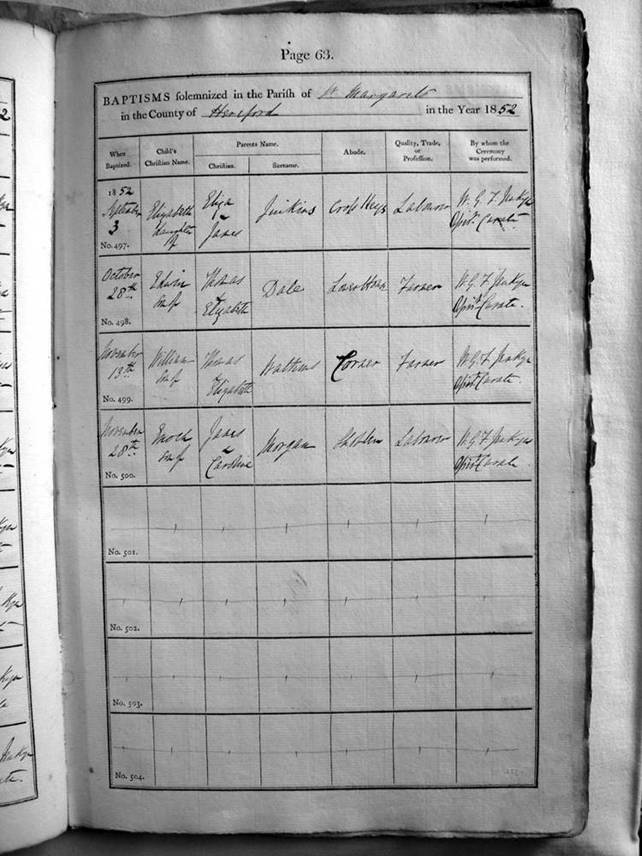 Page 63.
BAPTISMS solemnized in the Parish of St Margarets
in the County of Hereford in the Year 1852
When Baptized.
Child's Christian Name.
Parents Name.
Christian.
Surname.
Abode.
Quality, Trade, or Profession.
By whom the Ceremony was performed.
1852
September
3
No. 497.
Elizabeth
daughter
of
Eliza
&
James
Jenkins
Labourer
W. G. F. Jenkyn
Offg. Curate
October
28th
No. 498.
Edwin
son of
Thomas
&
Elizabeth
Dale
Farmer
W. G. F. Jenkyn
Offg. Curate.
November
13th
No. 499.
William
son of
Thomas
&
Elizabeth
Watkins
Corner
Farmer
W. G. F. Jenkyn
Offg. Curate.
November
28th
No. 500.
Enoch
son of
James
&
Caroline
Morgan
Labourer
W. G. F. Jenkyn
Offg. Curate.
No. 501.
No. 502.
No. 503.
No. 504.